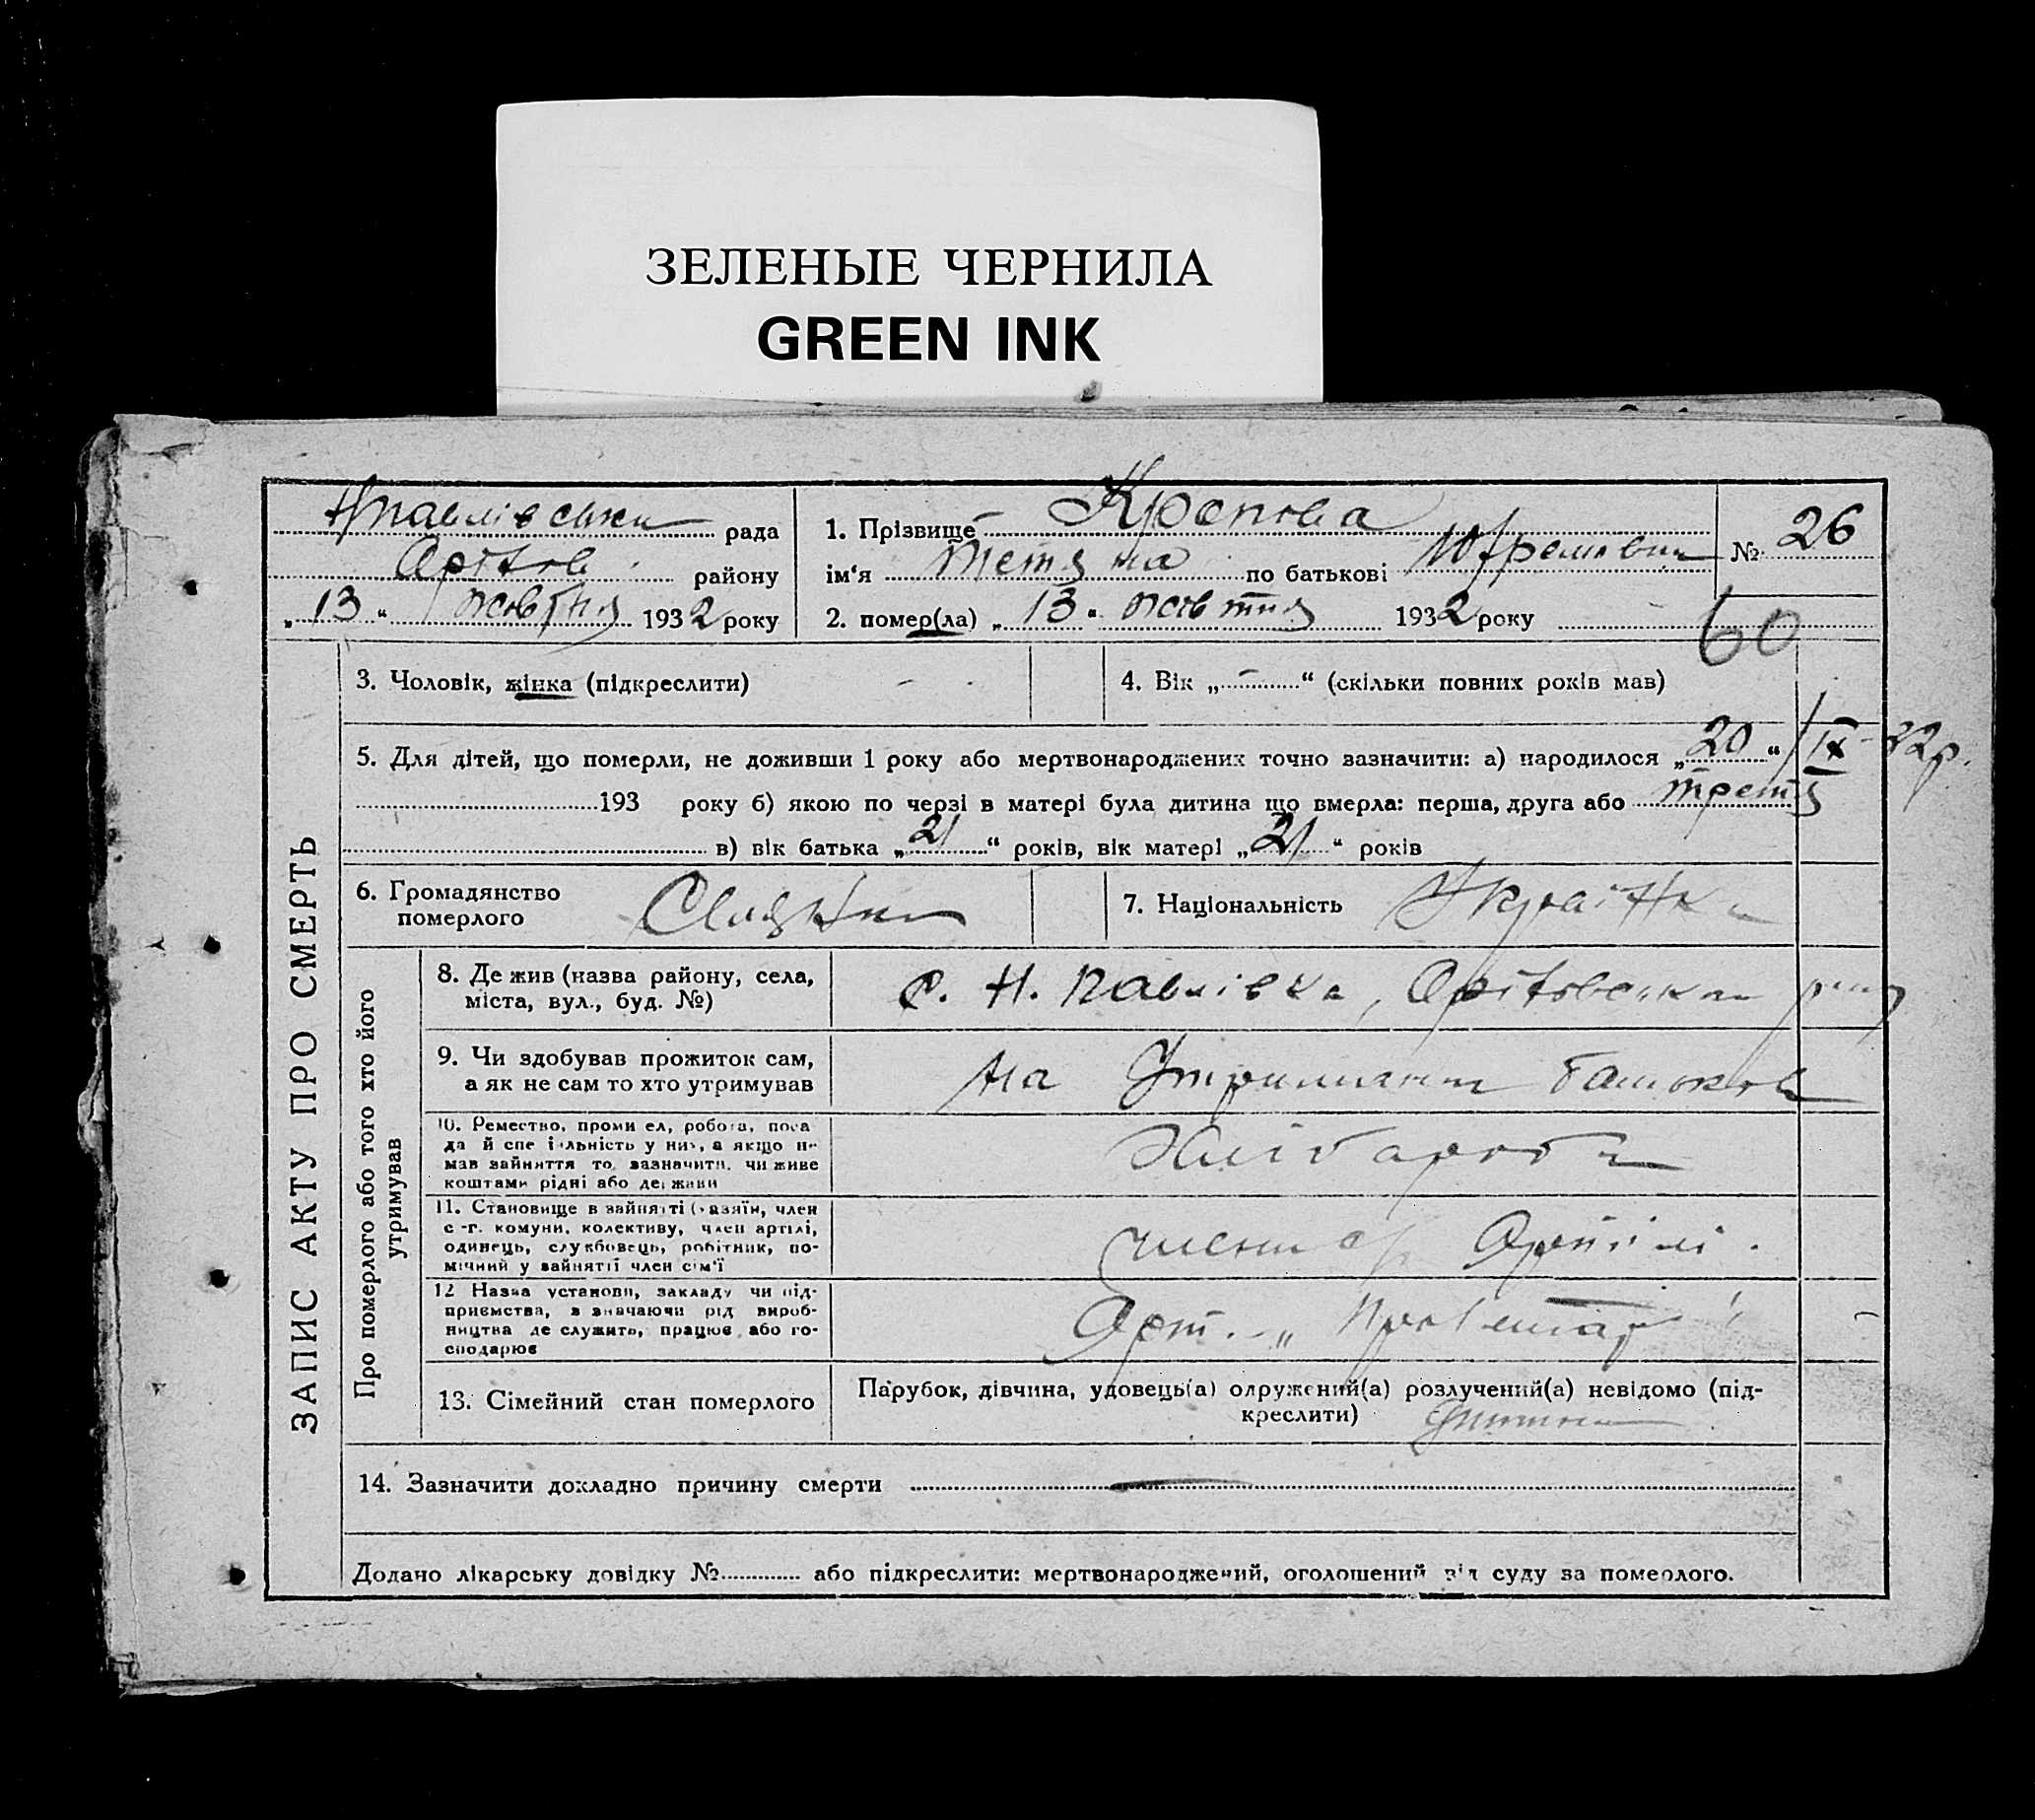 ЗЕЛЕНЫЕ ЧЕРНИЛА
GREEN INK
рада
району
„13“ жовтня 1932 року
1. Прізвище
ім‘я Тетяна по батькові
2. помер(ла) „13“ жовтня 1932 року
№ 26
60
ЗАПИС АКТУ ПРО СМЕРТЬ
3. Чоловік, жінка (підкреслити)
4. Вік „ “ (скільки повних років мав)
5. Для дітей, що померли, не доживши 1 року або мертвонароджених точно зазначити: а) народилося „20“ / IX - 32р.
193 року б) якою по черзі в матері була дитина що вмерла: перша, друга або третя
в) вік батька „21“ років, вік матері „21“ років
6. Громадянство
померлого
7. Національність Українка
Про померлого або того хто його
утримував
8. Де жив (назва району, села,
міста, вул., буд. №)
с. Н. Павлівка,
9. Чи здобував прожиток сам,
а як не сам то хто утримував
на утриманні батьков
10. Ремество, проми ел, робота, поса
да й спе іальність у них, а якщо н-
мав зайняття то зазначити, чи живе
коштами рідні або держави
11. Становище в зайнятті (хазяїн, член
с-г. комуни, колективу, член артілі,
одинець, службовець, робітник, по-
мічний у зайнятті член сім‘ї
Артілі.
12 Назва установи, закладу чи під-
приємства, зазначаючи рід вироб-
ництва де служить, працює або го-
сподарює
Арт. „
13. Сімейний стан померлого
Парубок, дівчина, удовець(а) одружений(а) розлучений(а) невідомо (під-
креслити)
14. Зазначити докладно причину смерти
Додано лікарську довідку № або підкреслити: мертвонароджений, оголошений від суду за померлого.